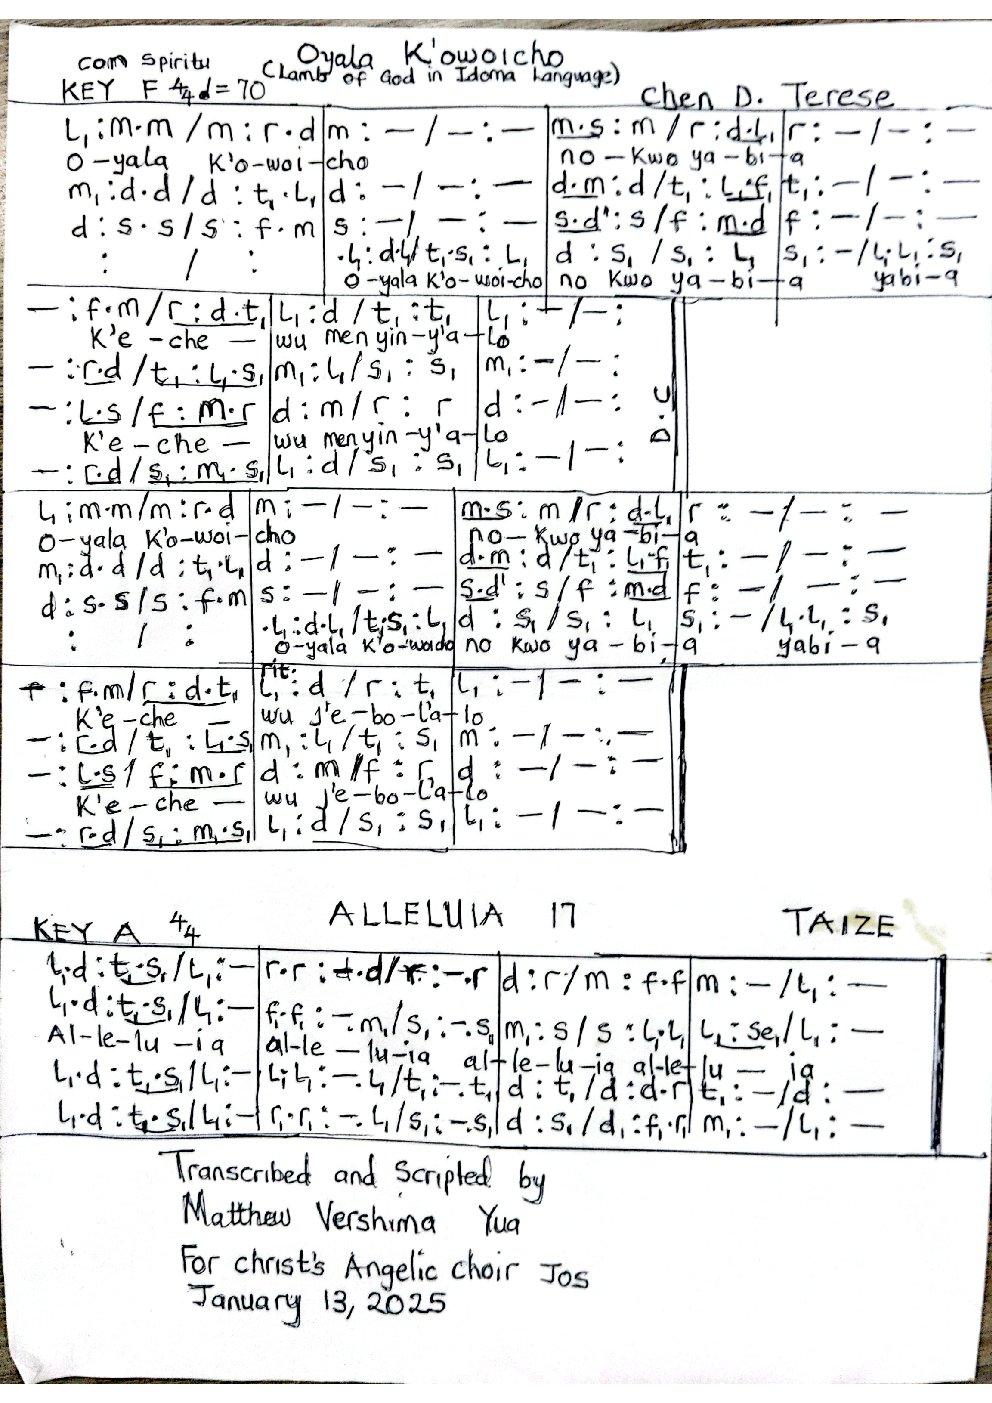 Oyala K'owoicho
com spiritu
(Lamb of God in Idoma Language)
KEY F 4/4 d=70
Chen D. Terese
L₁:m·m/m:r·d|m:—/—:—|m·s:m/r:d·L₁|r:—/—:—
O-yala K'o-woi-cho no-Kwo ya-bi-a
m₁:d·d/d:t₁·L₁|d:—/—:—|d·m:d/t₁:L₁·f₁|t₁:—/—:—
d:s·s/s:f·m|s:—/—:—|s·d':s/f:m·d|f:—/—:—
: / :|·L₁:d·L₁/t₁·s₁:L₁|d:s₁/s₁:L₁|s₁:—/L₁·L₁:s₁
O-yala K'o-woi-cho no Kwo ya-bi-a yabi-a
—:f·m/r:d·t₁|L₁:d/t₁:t₁|L₁:—/—:
K'e-che — wu men yin-y'a-Lo
—:r·d/t₁:L₁·s₁|m₁:L₁/s₁:s₁|m₁:—/—:
—:L·s/f:m·r|d:m/r:r|d:—/—:
D.C
K'e-che — wu men yin-y'a-Lo
—:r·d/s₁:m₁·s₁|L₁:d/s₁:s₁|L₁:—/—:
L₁:m·m/m:r·d|m:—/—:—|m·s:m/r:d·L₁|r:—/—:—
O-yala K'o-woi-cho no-Kwo ya-bi-a
m₁:d·d/d:t₁·L₁|d:—/—:—|d·m:d/t₁:L₁·f₁|t₁:—/—:—
d:s·s/s:f·m|s:—/—:—|s·d':s/f:m·d|f:—/—:—
: / :|·L₁:d·L₁/t₁·s₁:L₁|d:s₁/s₁:L₁|s₁:—/L₁·L₁:s₁
O-yala K'o-woicho no Kwo ya-bi-a yabi-a
rit:
—:f·m/r:d·t₁|L₁:d/r:t₁|L₁:—/—:—
K'e-che — wu J'e-bo-l'a-lo
—:r·d/t₁:L₁·s₁|m₁:L₁/t₁:s₁|m:—/—:—
—:L·s/f:m·r|d:m/f:r|d:—/—:—
K'e-che — wu J'e-bo-l'a-lo
—:r·d/s₁:m₁·s₁|L₁:d/s₁:s₁|L₁:—/—:—
ALLELUIA 17
KEY A 4/4
TAIZE
L₁·d:t₁·s₁/L₁:—|r·r:—·d/r:—·r|d:r/m:f·f|m:—/L₁:—
L₁·d:t₁·s₁/L₁:—|f₁·f₁:—·m₁/s₁:—·s₁|m₁:s/s:L₁·L₁|L₁:se₁/L₁:—
Al-le-lu-ia al-le-lu-ia al-le-lu-ia al-le-lu—ia
L₁·d:t₁·s₁/L₁:—|L₁·L₁:—·L₁/t₁:—·t₁|d:t₁/d:d·r|t₁:—/d:—
L₁·d:t₁·s₁/L₁:—|r₁·r₁:—·L₁/s₁:—·s₁|d:s₁/d₁:f₁·r₁|m₁:—/L₁:—
Transcribed and Scripted by
Matthew Vershima Yua
For christ's Angelic choir Jos
January 13, 2025